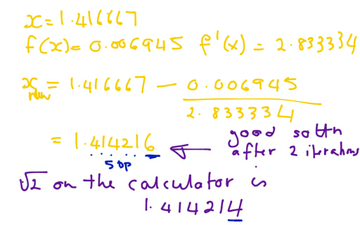 x = 1.416667
f(x) = 0.006945 f'(x) = 2.833334
x new = 1.416667 - 0.006945 / 2.833334
= 1.414216 ← good soltn
5 DP after 2 iterations
√2 on the calculator is
1.414214